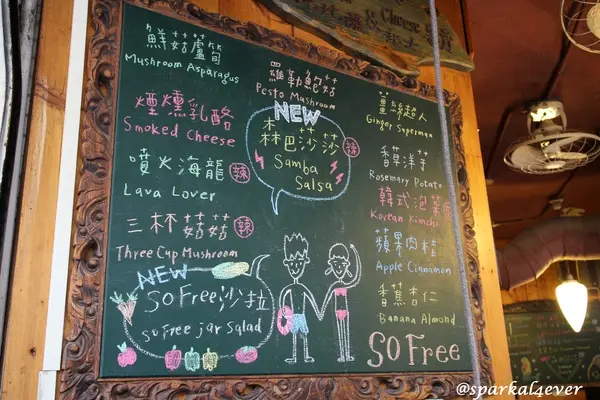 & Cheese
鮮菇蘆筍
Mushroom Asparagus
煙燻乳酪
Smoked Cheese
噴火海龍 辣
Lava Lover
三杯菇菇 辣
Three Cup Mushroom
NEW
So Free 沙拉
So Free jar Salad
羅勒鮑菇
Pesto Mushroom
NEW
森巴莎莎 辣
Samba
Salsa
薑絲超人
Ginger Superman
香草洋芋
Rosemary Potato
韓式泡菜
Korean Kimchi
蘋果肉桂
Apple Cinnamon
香蕉杏仁
Banana Almond
SO Free
@sparkal4ever